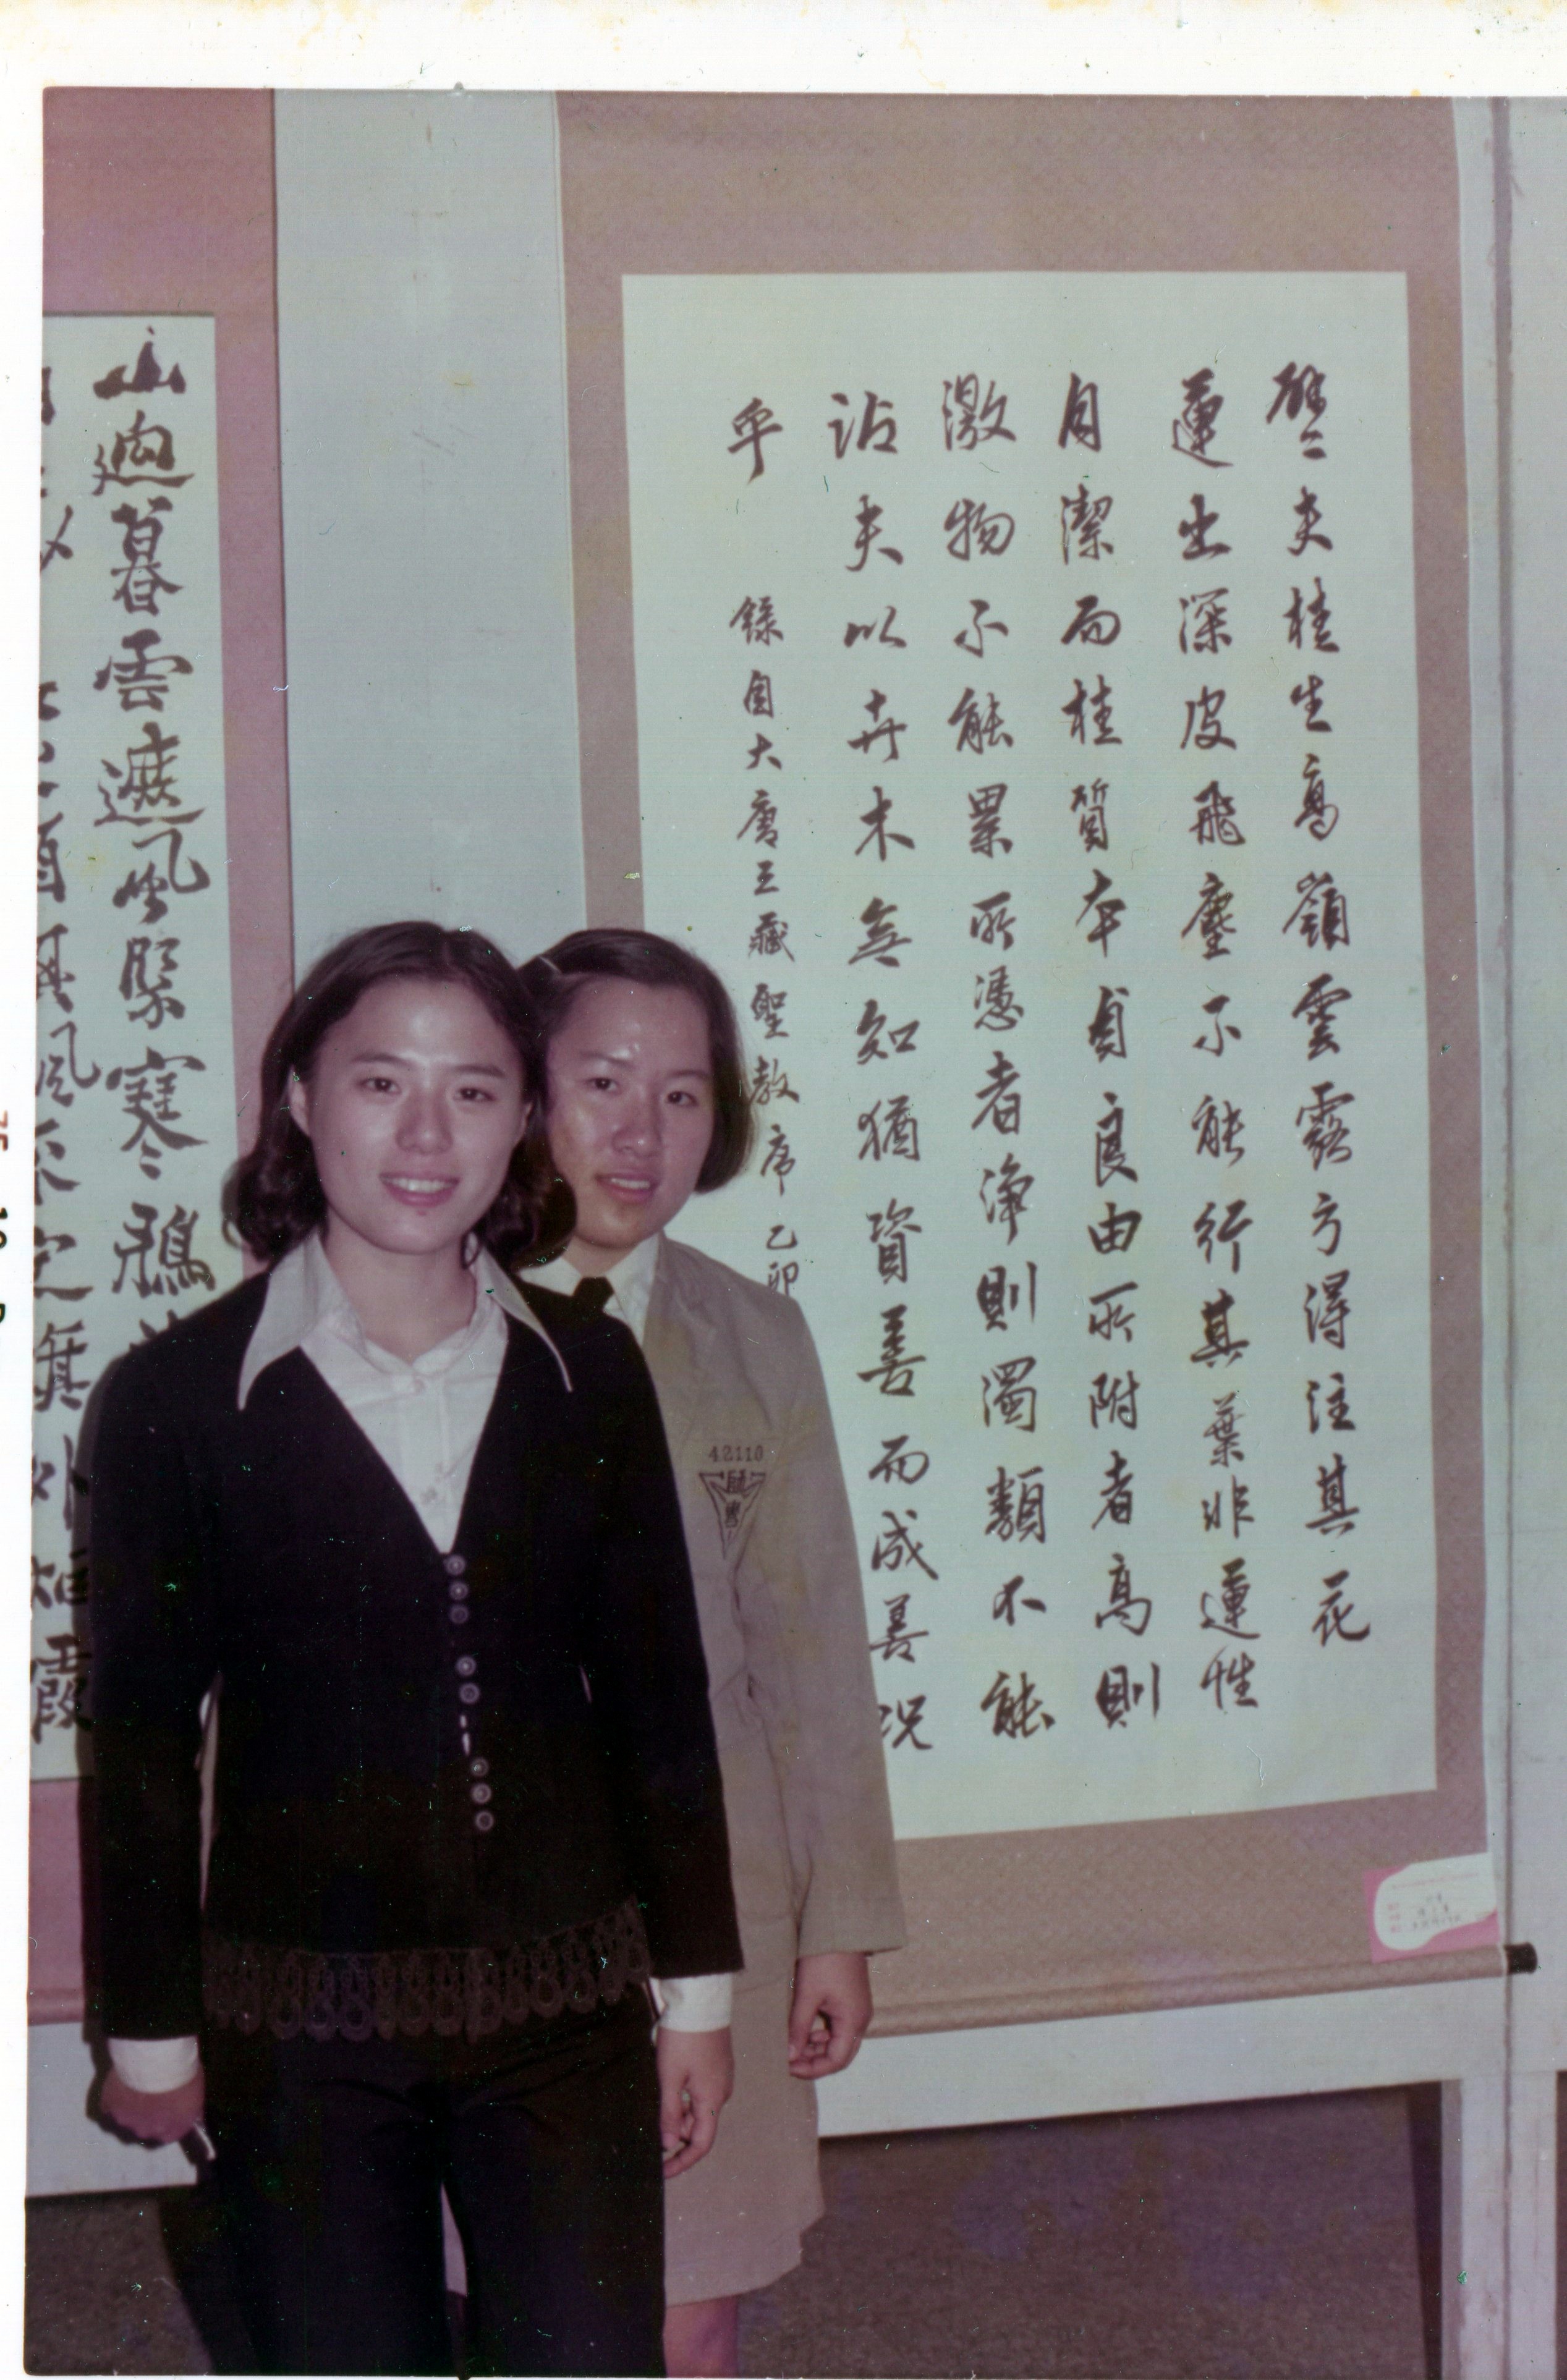 譬夫桂生高嶺雲露方得注其花
蓮出深皮飛塵不能行其葉非蓮性
自潔而桂質本貞良由所附者高則
激物不能累所憑者淨則濁類不能
沾夫以卉木無知猶資善而成善況
乎 錄自大唐三藏聖教序 乙卯
山迥暮雲遮風緊寒鴉
42110
師專